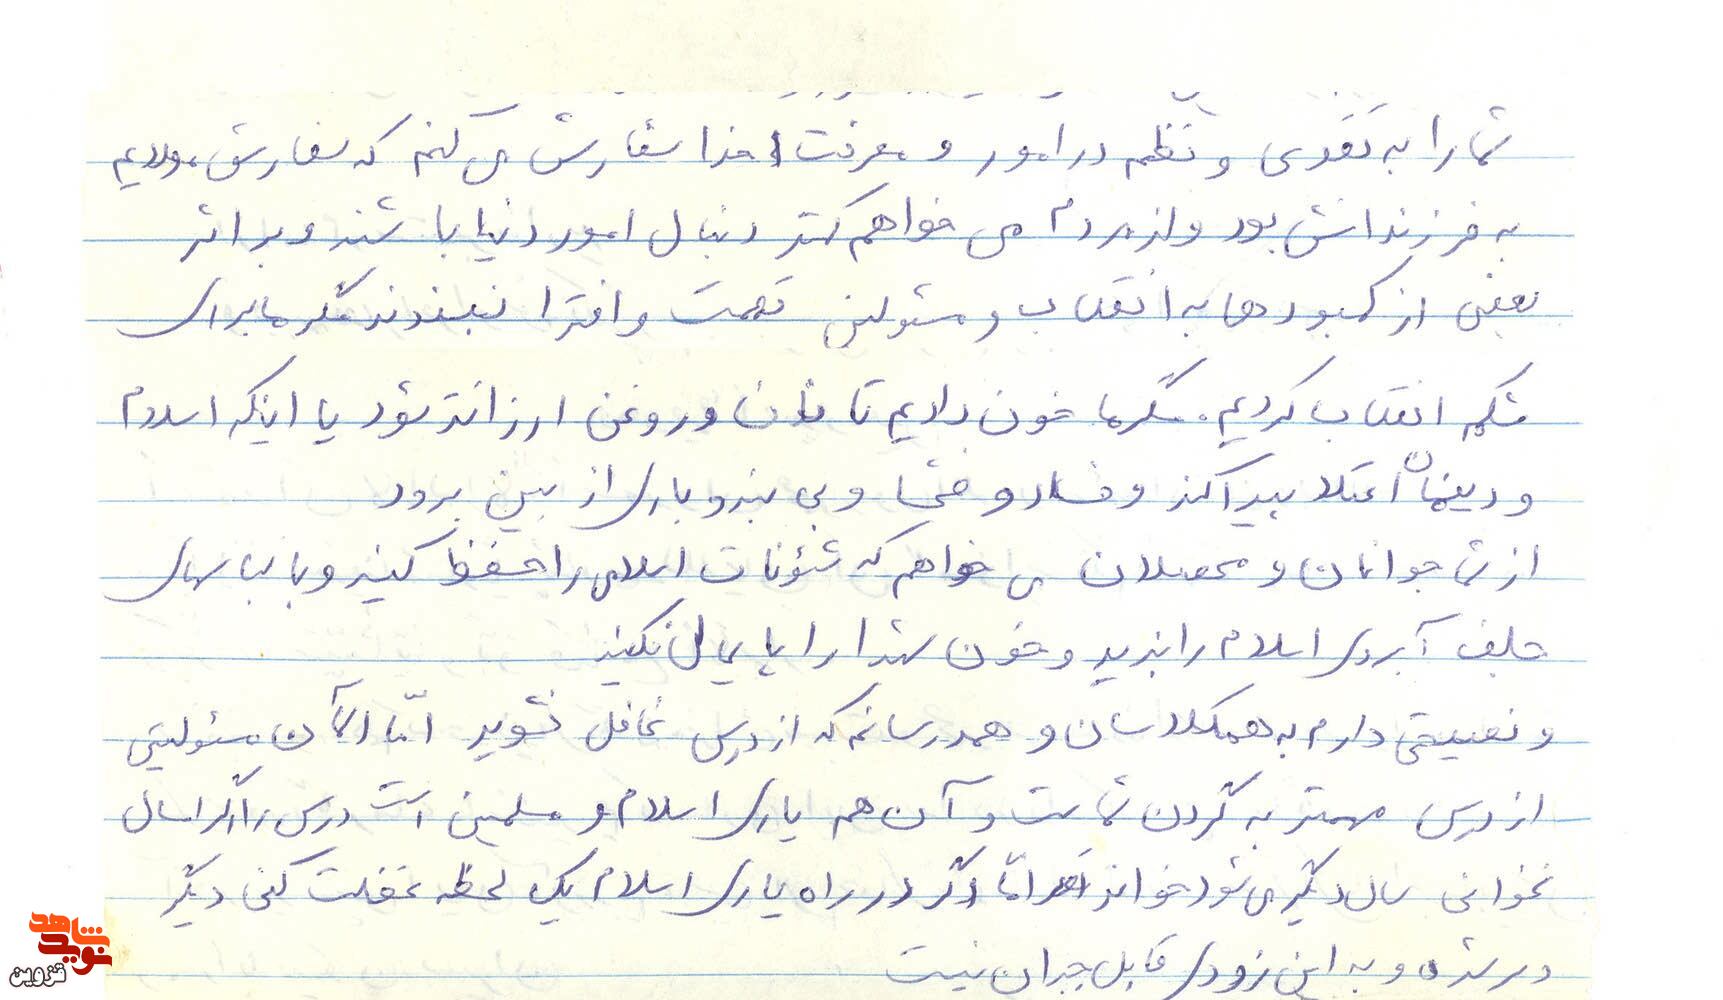 شما را به تقوی و نظم در امور و معرفت خدا سفارش می کنم که سفارش مولایم
به فرزندانش بود و از مردم می خواهم کمتر دنبال امور دنیا باشند و بر اثر
بعضی از کمبودها به انقلاب و مسئولین تهمت و افترا نبندند مگر ما برای
شکم انقلاب کردیم. مگر ما خون دادیم تا نان و روغن ارزانتر شود یا اینکه اسلام
و دینمان اعتلا پیدا کند و فساد و فحشا و بی بندوباری از بین برود
از شما جوانان و محصلان می خواهم که شئونات اسلامی را حفظ کنید و با لباسهای
جلف آبروی اسلام را نبرید و خون شهدا را پایمال نکنید
و نصیحتی دارم به همکلاسان و همدرسانم که از درس غافل نشوید امّا الآن مسئولیتی
از درس مهمتر به گردن شماست و آن هم یاری اسلام و مسلمین است درس را اگر امسال
نخوانی سال دیگر می شود خواند امّا اگر در راه یاری اسلام یک لحظه غفلت کنی دیگر
دیر شده و به این زودی قابل جبران نیست
نوید شاهد
قزوین